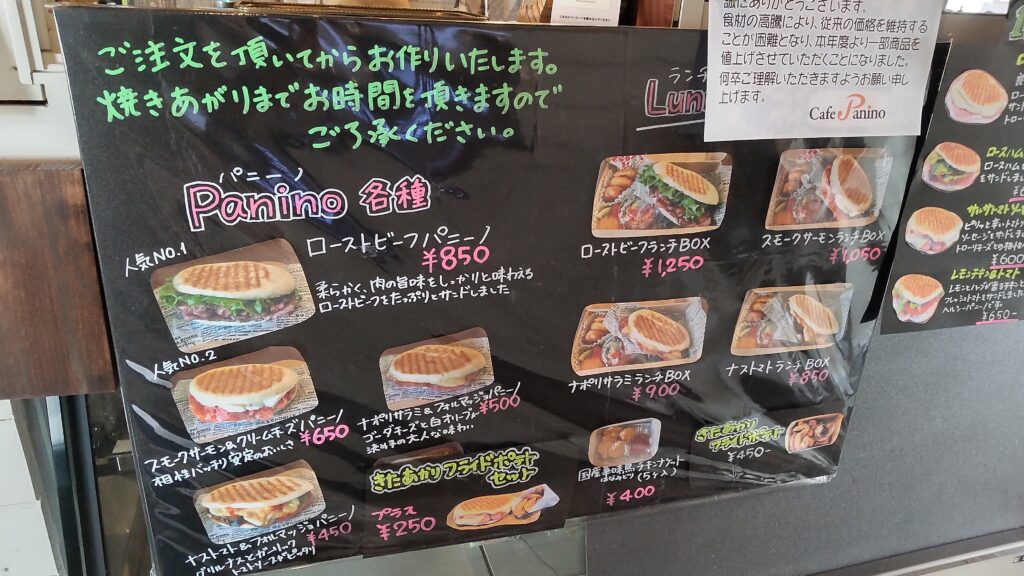 ご注文を頂いてからお作りいたします。
焼きあがりまでお時間を頂きますので
ご了承ください。
パニーノ
Panino 各種
人気NO.1
ローストビーフパニーノ
¥850
柔らかく、肉の旨味をしっかりと味わえる
ローストビーフをたっぷりとサンドしました
人気NO.2
スモークサーモン&クリームチーズパニーノ
¥650
相性バッチリ安定のおいしさ
ナポリサラミ&フォルマッジョパニーノ
¥500
ゴーダチーズと白オリーブの
大人な味わい
ナストマト&フォルマッジョパニーノ
¥450
グリルナスとガーリック
トマトソースがピッタリ
きたあかりフライドポテト
セット
プラス
¥250
誠にありがとうございます。
食材の高騰により、従来の価格を維持する
ことが困難となり、本年度より一部商品を
値上げさせていただくことになりました。
何卒ご理解いただきますようお願い申し
上げます。
Cafe Panino
ランチ
Lun
ローストビーフランチBOX
¥1,250
スモークサーモンランチBOX
¥1,050
ナポリサラミランチBOX
¥900
ナストマトランチBOX
¥850
国産
チキンナゲット
(5ヶ入)
¥400
きたあかり
フライドポテト
¥450-
ロースハム
ロースハム
をサンドしま
サルサトマトソ
ピリッと辛いトマト
ソーセージと
トロ〜リチーズとの相性
¥600
レモンチキン&トマト
レモンとハーブが香るチキンと
フレッシュトマトをサンドしました
ヘルシーパニーノです
¥650-